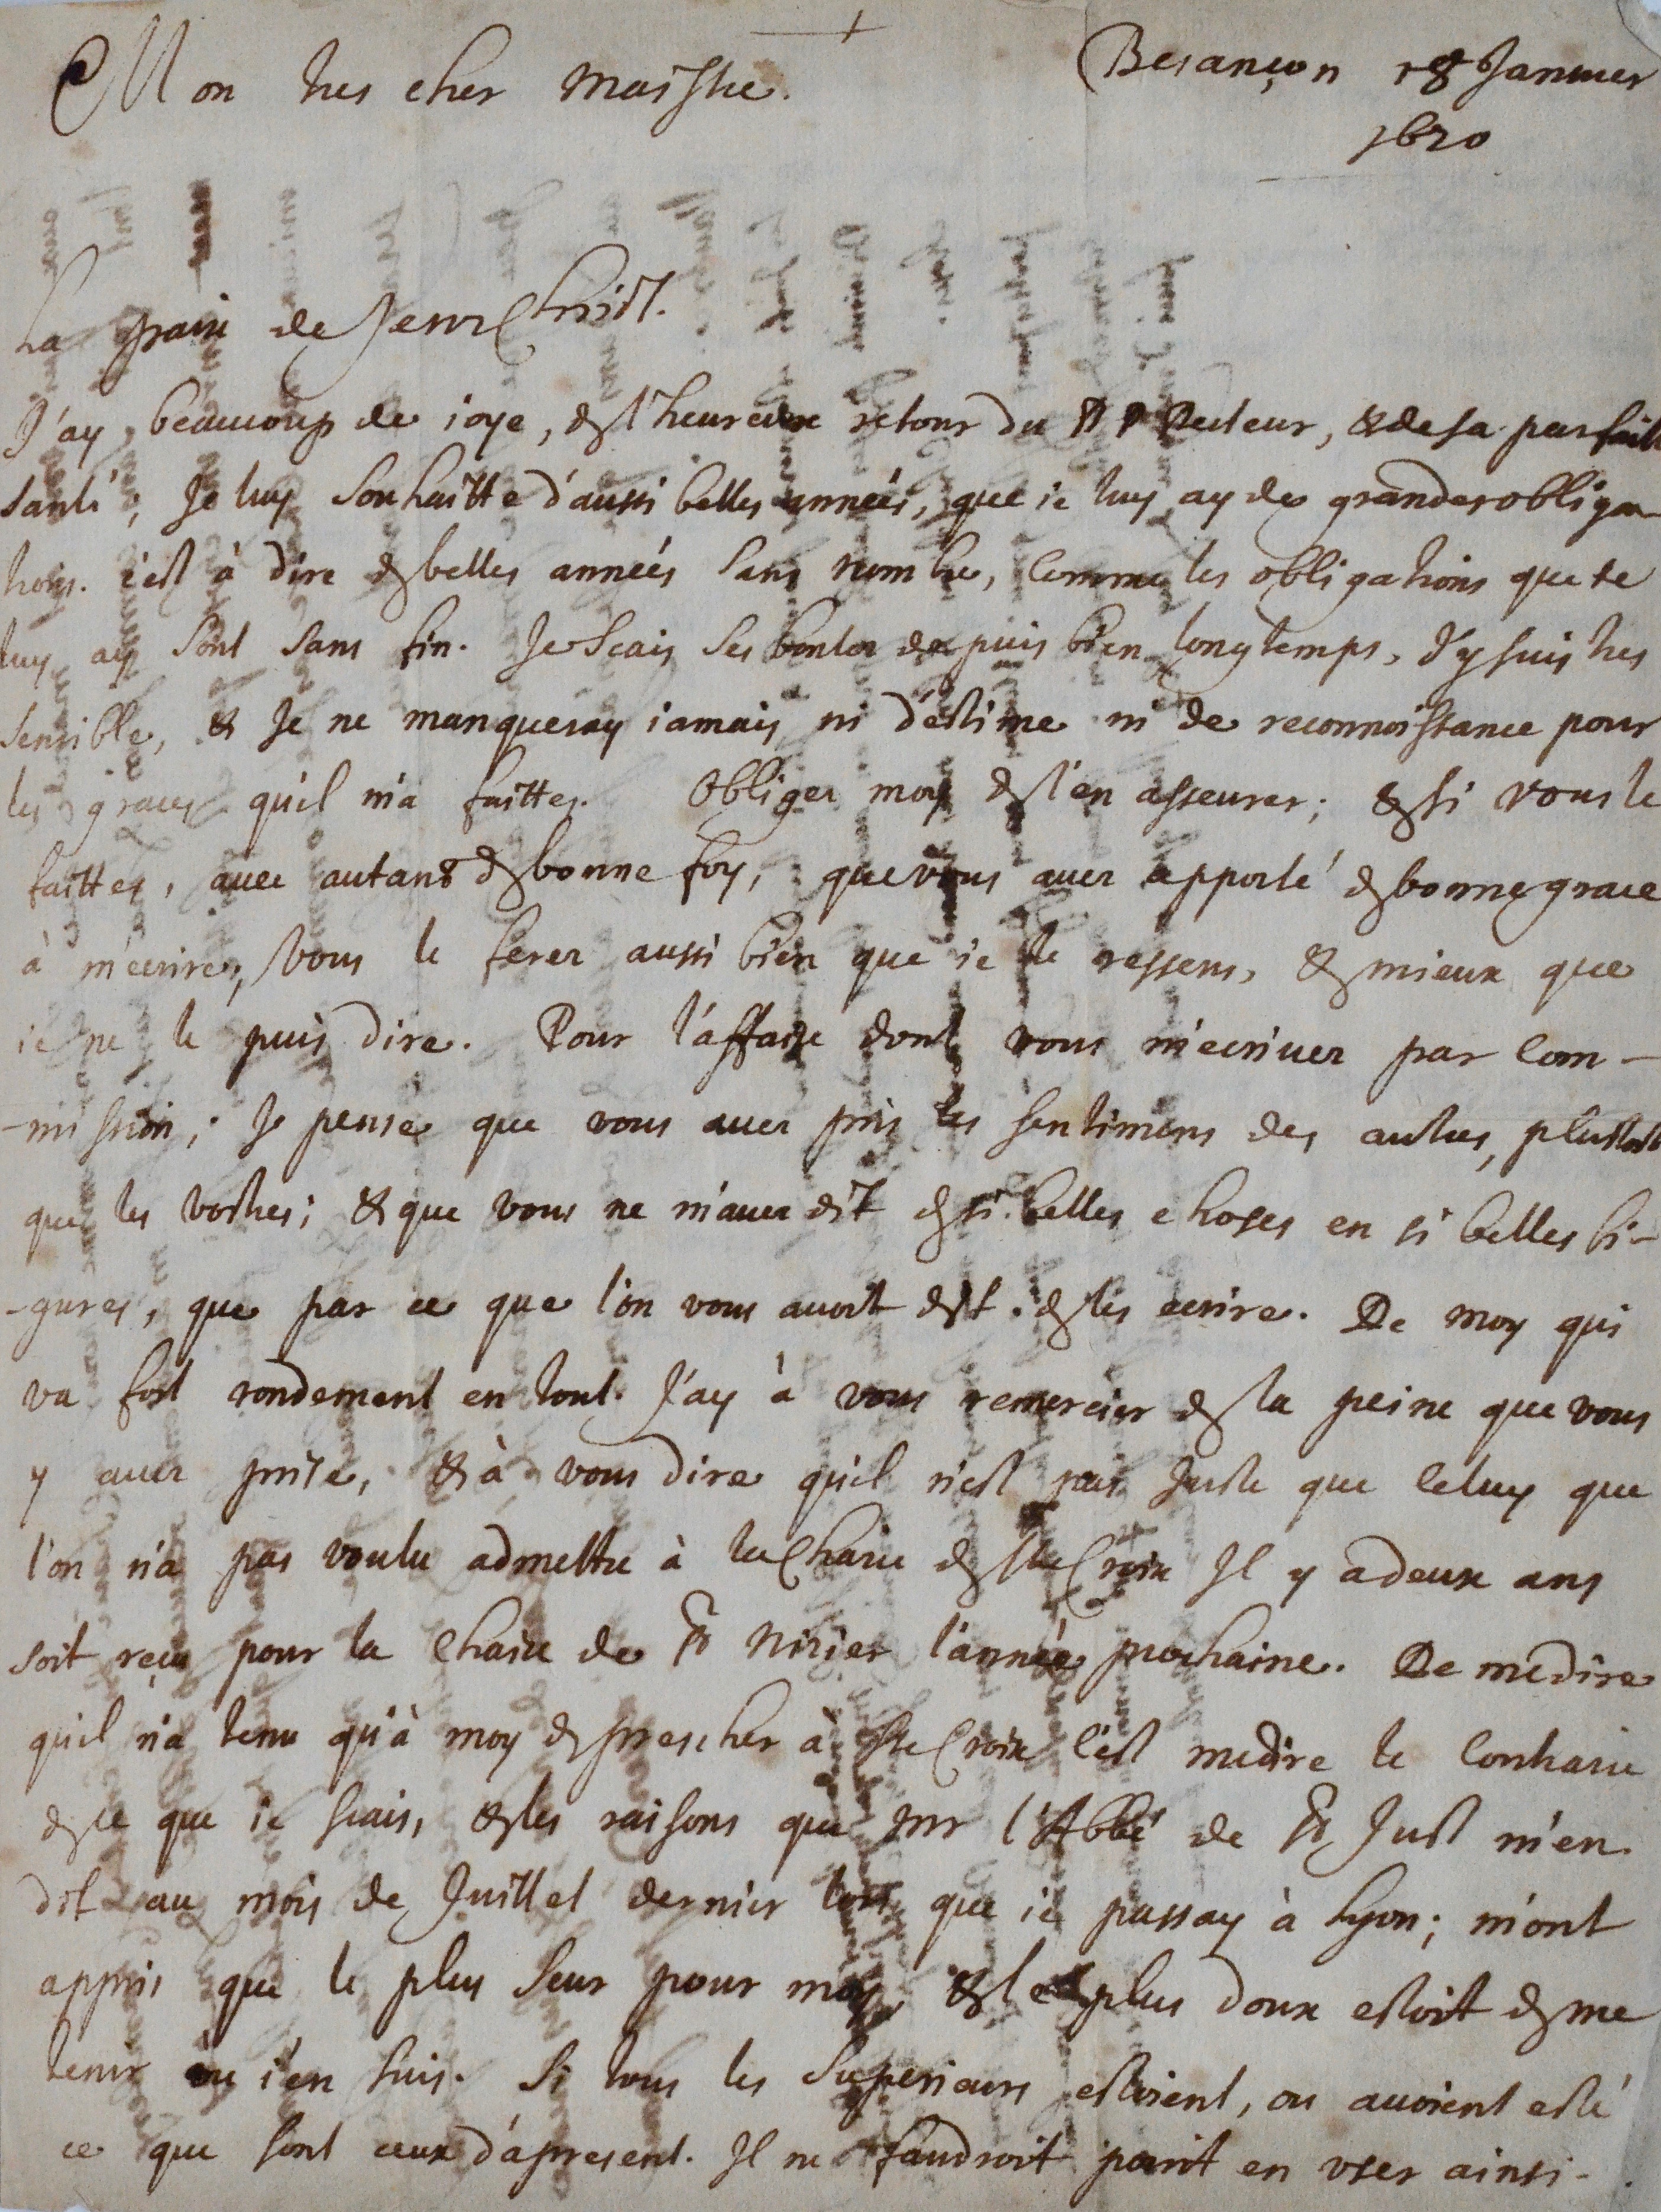 Mon tres cher maistre.
Besançon 18 Januier
1670
La paix de Jesus Christ.
J'ay beaucoup de ioye, de l'heureuse retour du R P Recteur, & de sa parfaitte
santé; Je luy souhaitte d'aussi belles années, que ie luy ay de grandes obliga-
tions. c'est à dire de belles années sans nombre, comme les obligations que ie
luy ay sont sans fin. Je scais ses bontez depuis bien longtemps, J'y suis tres
sensible, & Je ne manqueray iamais ni d'estime ni de reconnoissance pour
les graces qu'il m'a faittes. Obligez moy de l'en asseurer; & si vous le
faittes, auec autant de bonne foy, que vous auez apporté de bonne grace
à m'ecrire, vous le ferez aussi bien que ie le ressens, & mieux que
ie ne le puis dire. Pour l'affaire dont vous m'ecriuez par com-
-mission; Je pense que vous auez pris les sentimens des autres, plustost
que les vostres; & que vous ne m'auez dit de si belles choses en si belles fi-
-gures, que par ce que l'on vous auoit dit de les ecrire. De moy qui
va fort rondement en tout. J'ay à vous remercier de la peine que vous
y auez prise, & à vous dire qu'il n'est pas Juste que celuy que
l'on n'a pas voulu admettre à la Chaire de Ste Croix Il y a deux ans
soit reçu pour la Chaire de St Nizier l'année prochaine. De me dire
qu'il n'a tenu qu'à moy de prescher à Ste Croix c'est me dire le contraire
de ce que ie scais, & les raisons que Mr l'Abbé de St Just m'en
dit au mois de Juillet dernier lors que ie passay à Lyon; m'ont
appris que le plus seur pour moy, & le plus doux estoit de me
tenir où i'en suis. Si tous les Superieurs estoient, ou auoient esté
ce que sont ceux d'apresent. Il ne faudroit point en vser ainsi-